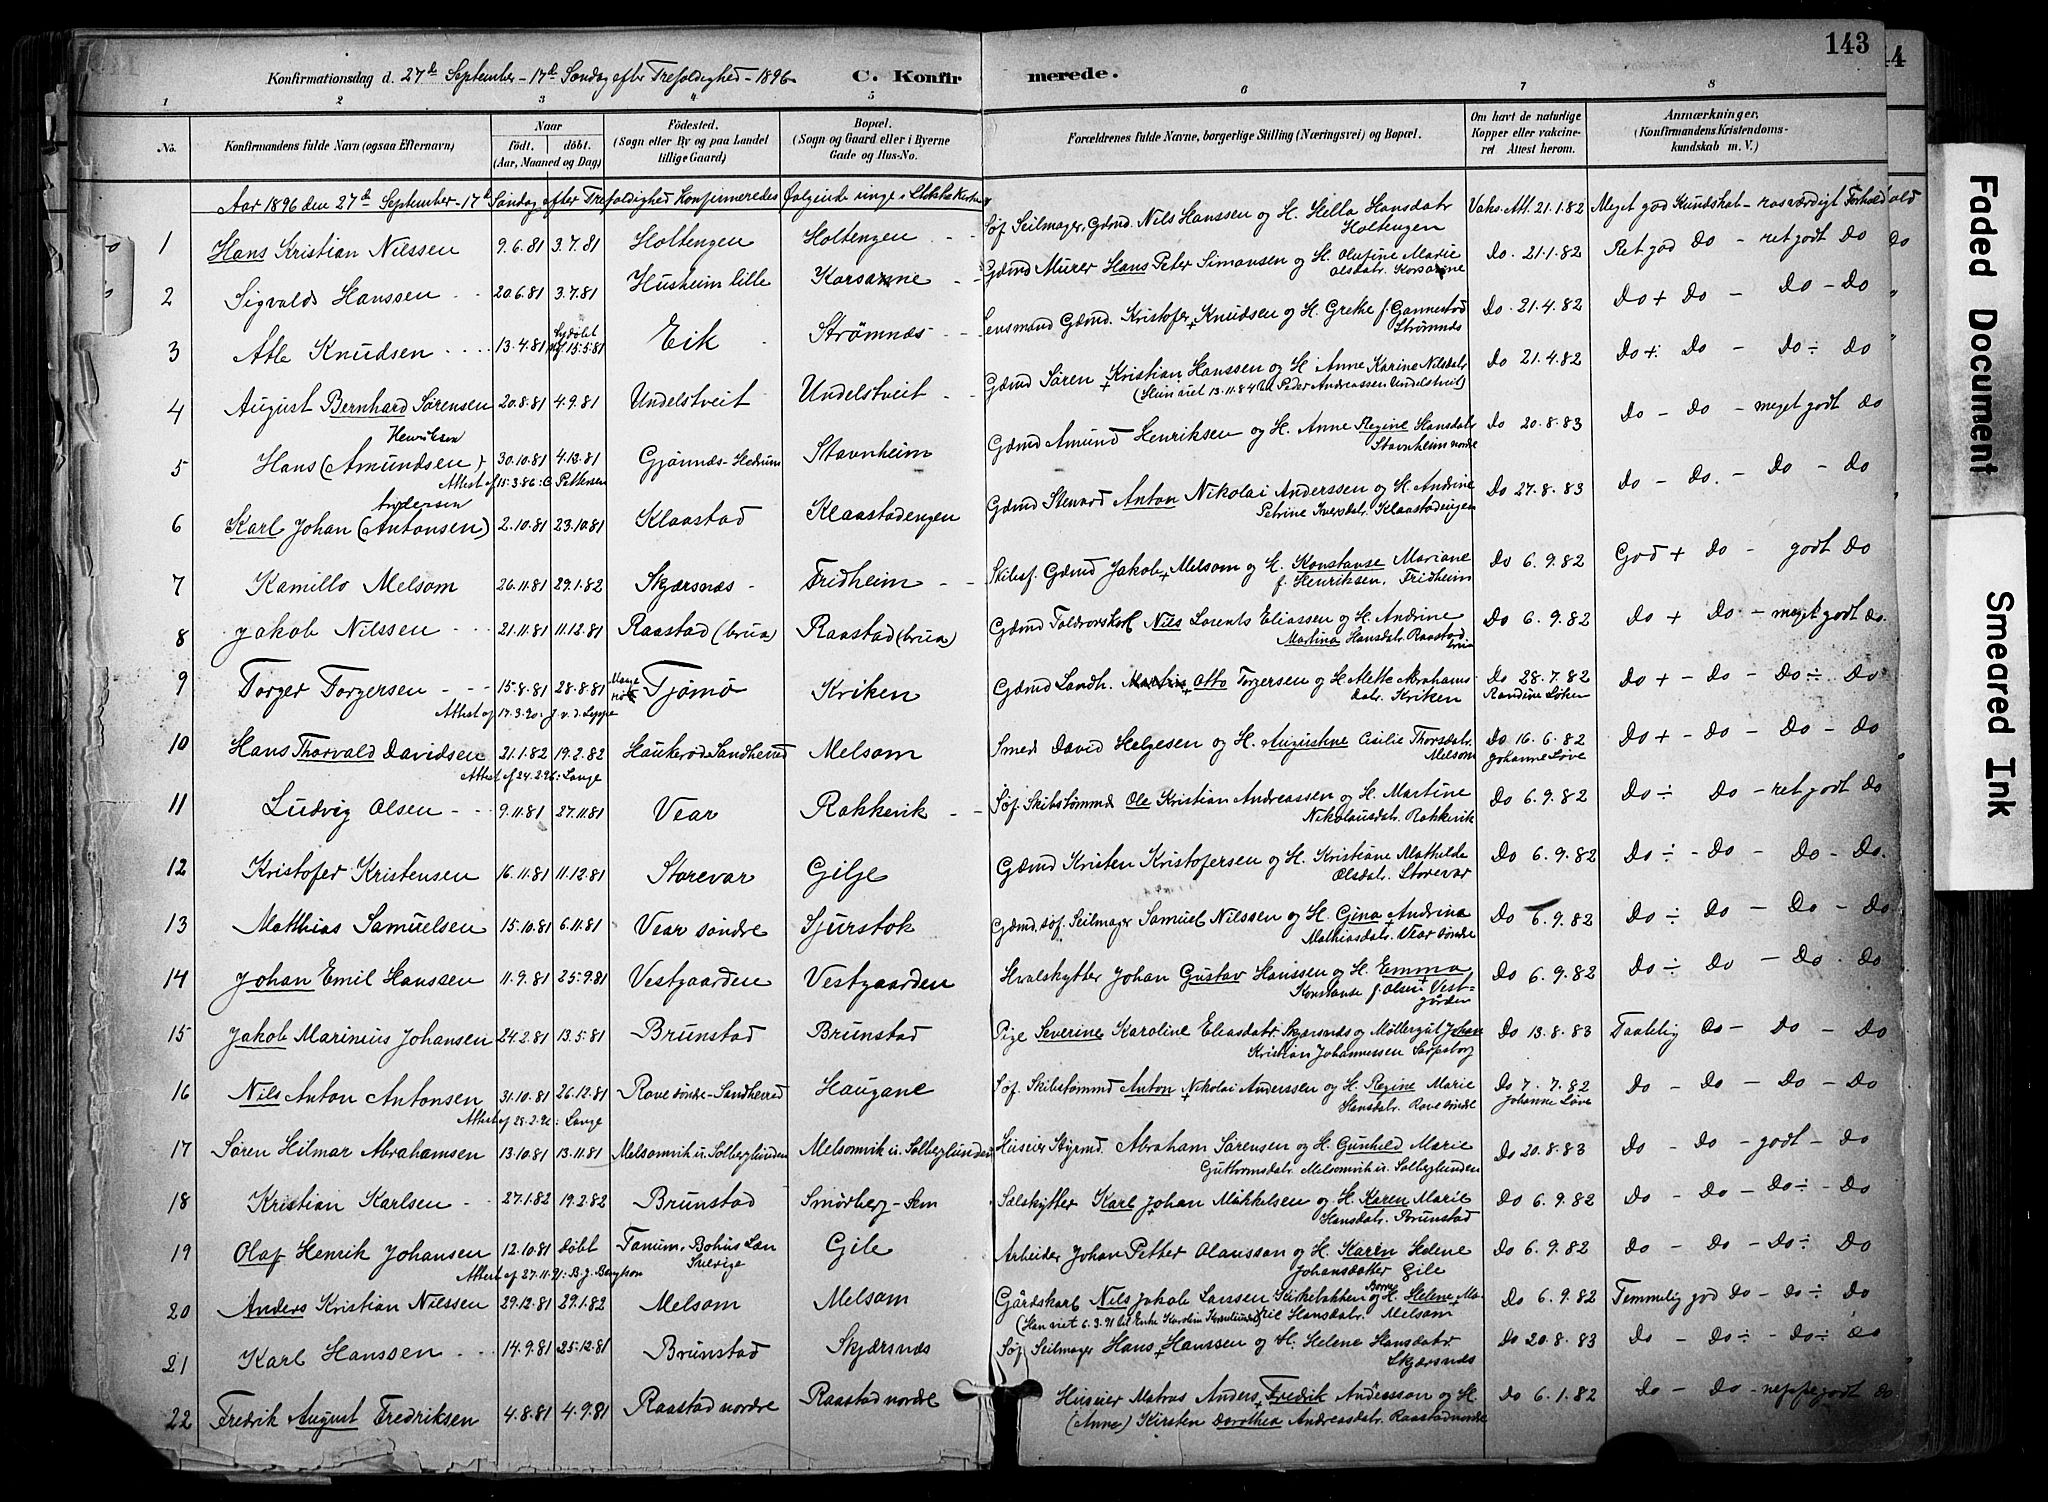 143
Konfirmationsdag d. 27de September - 17de Søndag efter Trefoldighed - 1896. C. Konfirmerede.
1 2 3 4 5 6 7 8
No. Konfirmandens fulde Navn (ogsaa Efternavn) Naar født. døbt. (Aar, Maaned og Dag) Fødested. (Sogn eller By og paa Landet tillige Gaard) Bopæl. (Sogn og Gaard eller i Byerne Gade og Hus-No. Forældrenes fulde Navne, borgerlige Stilling (Næringsvei) og Bopæl. Om havt de naturlige Kopper eller vakcineret Attest herom. Anmærkninger. (Konfirmandens Kristendomskundskab m. V.)
Aar 1896 den 27de September - 17de Søndag efter Trefoldighed Konfirmeredes Følgende unge i Stokke Kirke
1 Hans Kristian Nilssen 9.6.81 3.7.81 Holtengen Holtengen Søf. Seilmager, Gdmd. Nils Hanssen og H. Hella Hansdatr Holtengen Vaks. Att. 21.1.82 Meget god Kundskab - rosværdigt Forhold
2 Sigvald Hanssen 20.6.81 3.7.81 Husheim lille Korsanne Gdmd Murer Hans Peter Simonsen og H. Olufine Marie Olsdatr. Korsanne Do. 21.1.82 Ret god Do - ret godt Do
3 Atle Knudsen 13.4.81 15.5.81 Eik Strømnæs Lensmand Gdmd. Kristofer Knudsen og H. Grethe f. Gannestad Strømnæs Do. 21.4.82 Do + Do - Do - Do
4 August Bernhard Sørensen 20.8.81 4.9.81 Undelstveit Undelstveit Gdmd Søren Kristian Hanssen og H. Anne Karine Nilsdatr (Hun viet 13.11.84 til Peder Andreassen Undelstveit) Do 21.4.82 Do ÷ Do - Do ÷ Do
5 Hans (Amundsen) Henriksen 30.10.81 4.12.81 Gjønnæs - Hedrum Stavnheim Gdmd Amund Henriksen og H. Anne Regine Hansdatr Stavnheim nordre Do 20.8.83 Do - Do - meget godt Do
Attest af 15.3.86: C Pettersen
6 Karl Johan (Antonsen) Andersen 2.10.81 23.10.81 Klaastad Klaastadengen Gdmd Steward Anton Nikolai Anderssen og H. Andrine Petrine Iversdatr. Klaastadengen Do 27.8.83 Do - Do. - Do - Do
7 Kamillo Melsom 26.11.81 29.1.82 Skjærsnæs Fridheim Skibsf. Gdmd Jakob Melsom og H. Konstanse Mariane f. Henriksen, Fridheim Do 6.9.82 God + Do - godt Do
8 Jakob Nilssen 21.11.81 11.12.81 Raastad (brua) Raastad (brua) Gdmd Nils Lorents Eliassen og H. Andrine Martina Hansdatr. Raastad brua Do 6.9.82 Do + Do - meget godt Do.
9 Torger Torgersen 15.8.81 28.8.81 Tjømø Kriken Gdmd Landh. Otto Torgersen og H Mette Abrahamsdatr. Kriken Do 28.7.82 Randine Løken Do + - Do - Do ÷ Do
Attest af 17.3.90: J. v. d. Lippe
10 Hans Thorvald Davidsen 21.1.82 19.2.82 Haukerød Sandherred Melsom Smed David Helgesen og H. Augustine Cicilie Thorsdatr. Melsom Do 16.6.82 Johanne Løve Do + - Do - Do - Do
Attest af 24.2.96: Lange
11 Ludvig Olsen 9.11.81 27.11.81 Vear Rakkevik Søf. Skibstømmd Ole Kristian Andreassen og H. Martine Nikolausdatr. Rakkevik Do 6.9.82 Do ÷ Do - ret godt Do
12 Kristofer Kristensen 16.11.81 11.12.81 Storevar Gilje Gdmd Kristen Kristofersen og H. Kristiane Mathilde Olsdatr. Storevar Do 6.9.82 Do ÷ - Do - Do - Do.
13 Matthias Samuelsen 15.10.81 6.11.81 Vear søndre Sjurstok Gdmd, søf. Seilmager Samuel Nilssen og H. Gina Andrina Mathiasdatr. Vear søndre Do 6.9.82 Do ÷ Do - Do - Do.
14 Johan Emil Hanssen 11.9.81 25.9.81 Vestgaarden Vestgaarden Hvalskytter Johan Gustav Hanssen og H. Emma Konstanse f. Olsen Vestgården Do 6.9.82 Do ÷ Do - Do. Do
15 Jakob Marinius Johansen 24.2.81 13.5.81 Brunstad Brunstad Pige Severine Karoline Eliasdatr Skjærsnæs og Møllergut Johan Kristian Johannessen Sarpsborg Do 13.8.83 Taalelig Do - Do - Do
16 Nils Anton Antonsen 31.10.81 26.12.81 Rove søndre - Sandherred Haugane Søf. Skibstømmd Anton Nikolai Anderssen og H. Regine Marie Hansdatr. Rove søndre Do 7.7.82 Johanne Løve Do - Do - Do - Do
Attest af 28.2.96: Lange
17 Søren Hilmar Abrahamsen 13.10.81 13.11.81 Melsomvik u. Solberglunden Melsomvik u. Solberglunden Huseier Styrmd. Abraham Sørensen og H. Gunhild Marie Guttormsdatr. Melsomvik u. Solberglunden Do 20.8.83 Do - Do - godt - Do
18 Kristian Karlsen 27.1.82 19.2.82 Brunstad Smørberg - Sem Sælskytter Karl Johan Mikkelsen og H. Karen Marie Hansdatr. Brunstad Do 6.9.82 Do - Do - Do ÷ - Do
19 Olaf Henrik Johansen 12.10.81 døbt Tanum, Bohus Læn Sverige Gile Arbeider Johan Petter Olausson og H. Karin Helene Johansdatter Gile Do 6.9.82 Do - Do - Do ÷ Do
Attest af 27.11.91: B. J. Bengtson
20 Anders Kristian Nilssen 29.12.81 29.1.82 Melsom Melsom Gårdskarl Nils Jakob Larssen og H. Helene Hansdatr. Melsom Do 6.9.82 Temmelig god Do - Do ÷ Do
21 Karl Hanssen 14.9.81 25.12.81 Brunstad Skjærsnæs Søf. Seilmager Hans Hanssen og H. Helene Hansdatr. Skjærsnæs Do 20.8.83 Do - Do ÷ - Do ÷ Do
22 Fredrik August Fredriksen 4.8.81 4.9.81 Raastad nordre Raastad nordre Huseier Matros Anders Fredrik Andersson og H. (Anne) Kirsten Dorothea Andreasdatr. Raastad nordre Do 6.1.82 Do - Do - neppe godt Do
Faded Document
Smeared Ink